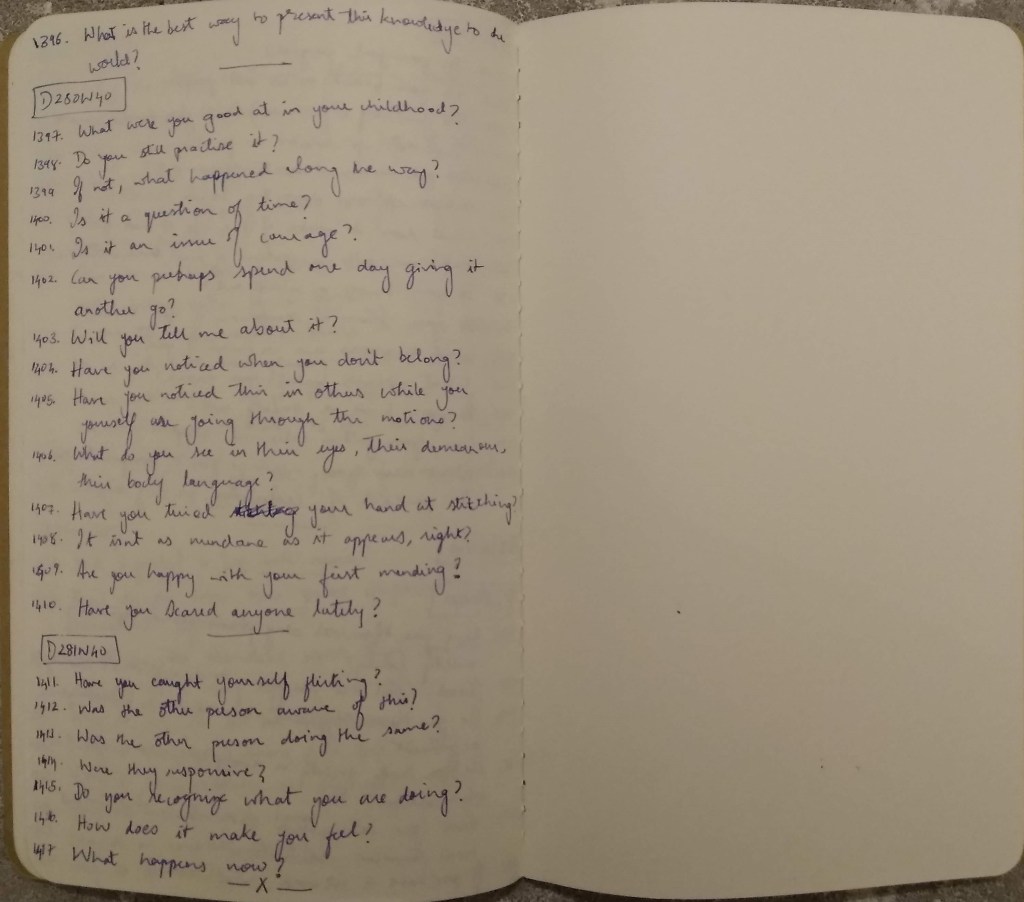 1396. What is the best way to present this knowledge to the
world?
D280W40
1397. What were you good at in your childhood?
1398. Do you still practise it?
1399 If not, what happened along the way?
1400. Is it a question of time?
1401. Is it an issue of courage?
1402. Can you perhaps spend one day giving it
another go?
1403. Will you tell me about it?
1404. Have you noticed when you don't belong?
1405. Have you noticed this in others while you
yourself are going through the motions?
1406. What do you see in their eyes, their demeanour,
their body language?
1407. Have you tried your hand at stitching?
1408. It isn't as mundane as it appears, right?
1409. Are you happy with your first mending?
1410. Have you scared anyone lately?
D281W40
1411. Have you caught yourself flirting?
1412. Was the other person aware of this?
1413. Was the other person doing the same?
1414. Were they responsive?
1415. Do you recognize what you are doing?
1416. How does it make you feel?
1417 What happens now?
— X —